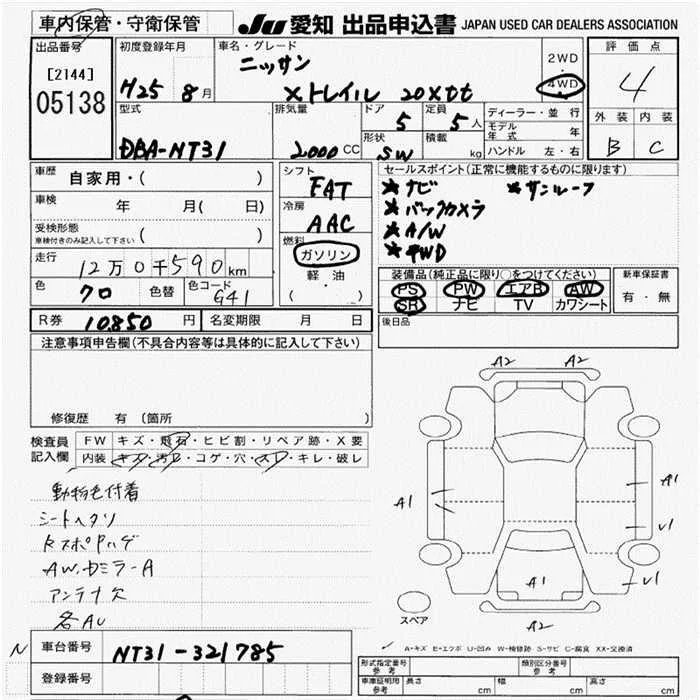 車内保管・守衛保管
JU 愛知 出品申込書 JAPAN USED CAR DEALERS ASSOCIATION
出品番号
[2144]
05138
初度登録年月
H25 8月
車名・グレード
ニッサン
Xトレイル 20Xtt
2WD
・
4WD
評価点
4
外装 内装
B C
型式
DBA-NT31
排気量
2000CC
ドア
5
定員
5人
形状
SW
積載
kg
ディーラー・並行
モデル年式 年
ハンドル 左・右
車歴
自家用・( )
車検 年 月( 日)
受検形態
車検付きのみ記入して下さい ( )
走行
12万0千590km
色
クロ
色替
色コード
G41
シフト
FAT
冷房
AAC
燃料
ガソリン
軽油
( ・ )
セールスポイント(正常に機能するものに限ります)
★ナビ ★サンルーフ
★バックカメラ
★A/W
★4WD
装備品(純正品に限り○をつけてください)
PS PW エアB AW
SR ナビ TV カワシート
新車保証書
有・無
R券 10.850円 名変期限 月 日
後日品
注意事項申告欄(不具合内容等は具体的に記入して下さい)
修復歴 有 (箇所 )
検査員記入欄
FW キズ・飛石・ヒビ割・リペア跡・X要
内装 キズ・汚レ・コゲ・穴・スレ・キレ・破レ
動物毛付着
シートヘタリ
RスポPハゲ
AW.カミラーA
アンテナ欠
各AU
A2 A2
A1
A1
A1
U1
U1
A2
スペア
A-キズ E-エクボ U-凹み W-補修跡 S-サビ C-腐食 XX-交換済
N 車台番号 NT31-321785
登録番号
形式指定番号
参考
類別区分番号
参考
車庫証明用
参考
長さ cm 幅 cm 高さ cm